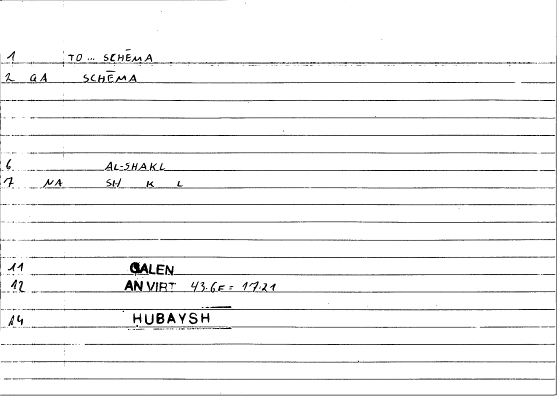 1 TO... SCHĒMA
2 GA SCHĒMA
6 AL-SHAKL
7 NA SH K L
11 GALEN
12 AN VIRT 43.6F = 17.21
14 HUBAYSH